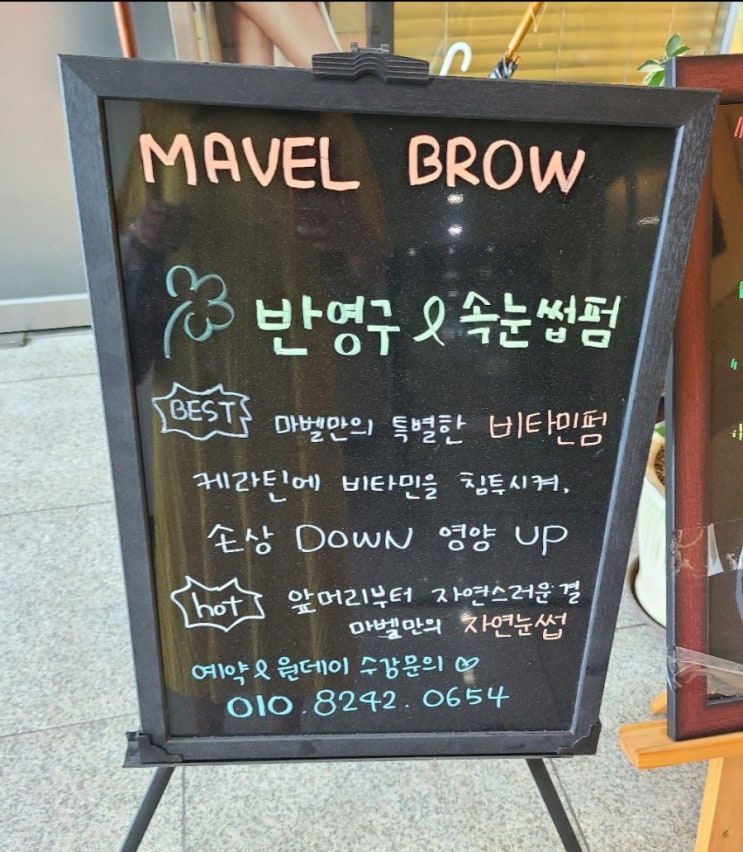 MAVEL BROW
반영구 & 속눈썹펌
BEST 마벨만의 특별한 비타민펌
케라틴에 비타민을 침투시켜,
손상 DOWN 영양 UP
hot 앞머리부터 자연스러운결
마벨만의 자연눈썹
예약 & 원데이 수강문의 ♡
010.8242.0654